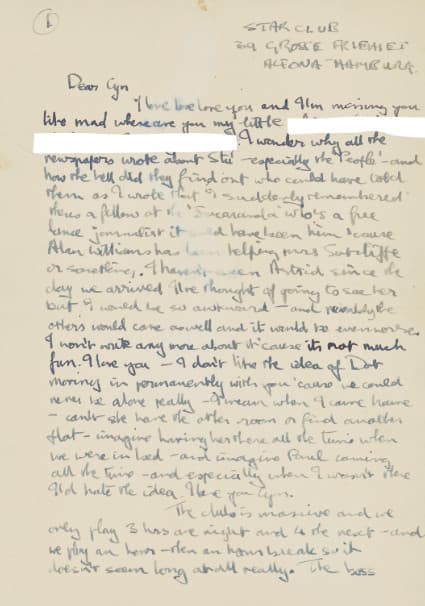 1
STAR CLUB
39 GROSSE FREIHEIT
ALTONA HAMBURG.
Dear Cyn
I love love love you and I'm missing you
like mad where are you my little
. I wonder why all the
newspapers wrote about Stu - especially the 'People' - and
how the hell did they find out who could have told
them as I wrote that I suddenly remembered
theres a fellow at the 'Jacaranda' who's a free
lance journalist it could have been him 'cause
Alan Williams has been helping mrs Sutcliffe
or something. I haven't seen Astrid since the
day we arrived I've thought of going to see her
but I would be so awkward - and probably the
others would come as well and it would be even worse.
I won't write any more about it 'cause its not much
fun. I love you - I don't like the idea of Dot
moving in permanently with you 'cause we could
never be alone really - I mean when I come home
- can't she have the other room or find another
flat - imagine having her there all the time when
we were in bed - and imagine Paul coming
all the time - and especially when I wasn't there
I'd hate the idea. I love you Cyn.
The club is massive and we
only play 3 hrs one night and 4 the next - and
we play an hour - then an hours break so it
doesn't seem long at all really. The boss